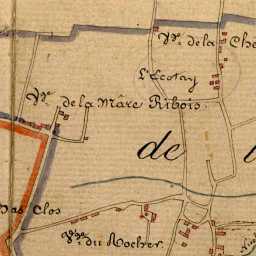 Vge. de la Ch
L'Ecotay
Vge. de la Mare Ribois.
de
Bas Clos
du Rocher